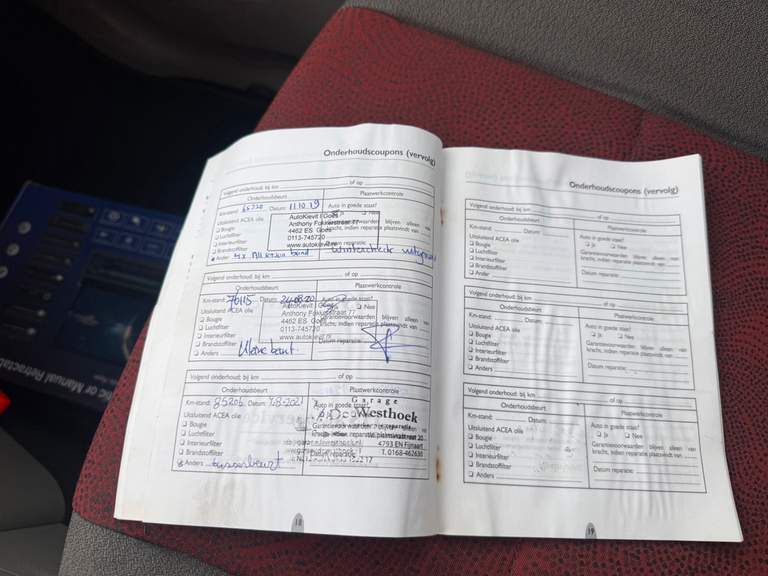 Onderhoudscoupons (vervolg)
Volgend onderhoud: bij km of op
Onderhoudsbeurt Plaatwerkcontrole
Km-stand: Datum: 11.10.19 Auto in goede staat?
Uitsluitend ACEA olie Nee
Bougie
Luchtfilter
Interieurfilter
Brandstoffilter
Anders
AutoKievit Goes
Anthony Fokkerstraat 77
4462 ES Goes
0113-745720
www.autokievit.nl
blijven alleen van
kracht, indien reparatie plaatsvindt van
Volgend onderhoud: bij km of op
Onderhoudsbeurt Plaatwerkcontrole
Km-stand: 76115 Datum: 24-08-20 Auto in goede staat?
Uitsluitend ACEA olie Nee
Bougie
Luchtfilter
Interieurfilter
Brandstoffilter
Anders Kleine beurt
AutoKievit Goes
Anthony Fokkerstraat 77
4462 ES Goes
0113-745720
www.autokievit.nl
Garantievoorwaarden blijven alleen van
kracht, indien reparatie plaatsvindt van
Datum reparatie:
Volgend onderhoud: bij km of op
Onderhoudsbeurt Plaatwerkcontrole
Km-stand: 85206 Datum: Auto in goede staat?
Uitsluitend ACEA olie
Bougie
Luchtfilter
Interieurfilter
Brandstoffilter
Anders tussenbeurt
Garage
De Westhoek
4793 EN Fijnaart
T. 0168-462638
Datum reparatie:
18
Onderhoudscoupons (vervolg)
Volgend onderhoud: bij km of op
Onderhoudsbeurt Plaatwerkcontrole
Km-stand: Datum: Auto in goede staat?
Uitsluitend ACEA olie Ja Nee
Bougie Garantievoorwaarden blijven alleen van
Luchtfilter kracht, indien reparatie plaatsvindt van
Interieurfilter
Brandstoffilter Datum reparatie:
Anders
Volgend onderhoud: bij km of op
Onderhoudsbeurt Plaatwerkcontrole
Km-stand: Datum: Auto in goede staat?
Uitsluitend ACEA olie Ja Nee
Bougie Garantievoorwaarden blijven alleen van
Luchtfilter kracht, indien reparatie plaatsvindt van
Interieurfilter
Brandstoffilter Datum reparatie:
Anders
Volgend onderhoud: bij km of op
Onderhoudsbeurt Plaatwerkcontrole
Km-stand: Datum: Auto in goede staat?
Uitsluitend ACEA olie Ja Nee
Bougie Garantievoorwaarden blijven alleen van
Luchtfilter kracht, indien reparatie plaatsvindt van
Interieurfilter
Brandstoffilter Datum reparatie:
Anders
19
or Manual Retractab